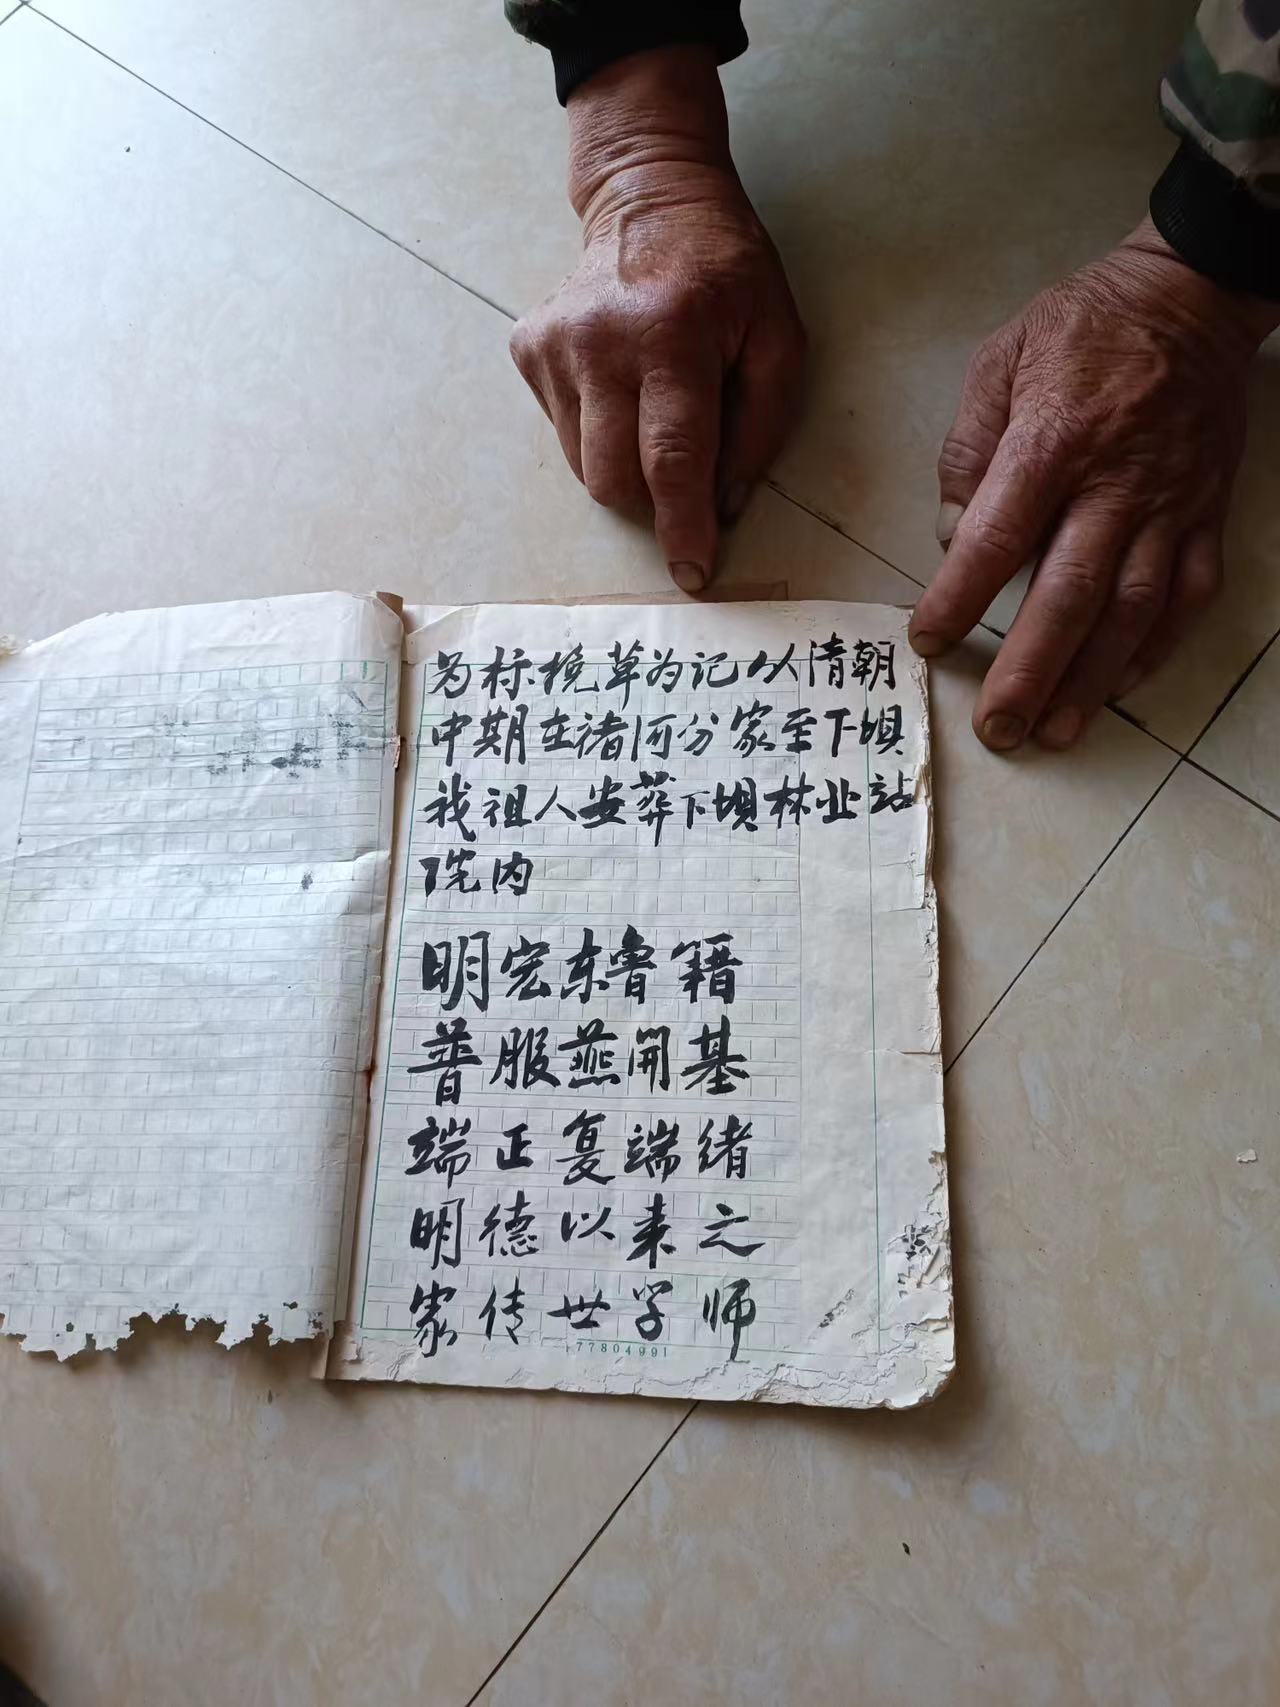 为标挽草为记以清朝
中期在褚河分家至下坝
我祖人安葬下坝林业站
院内
明宏东鲁籍
普服燕開基
端正复端绪
明德以来之
家传世学师
77804991